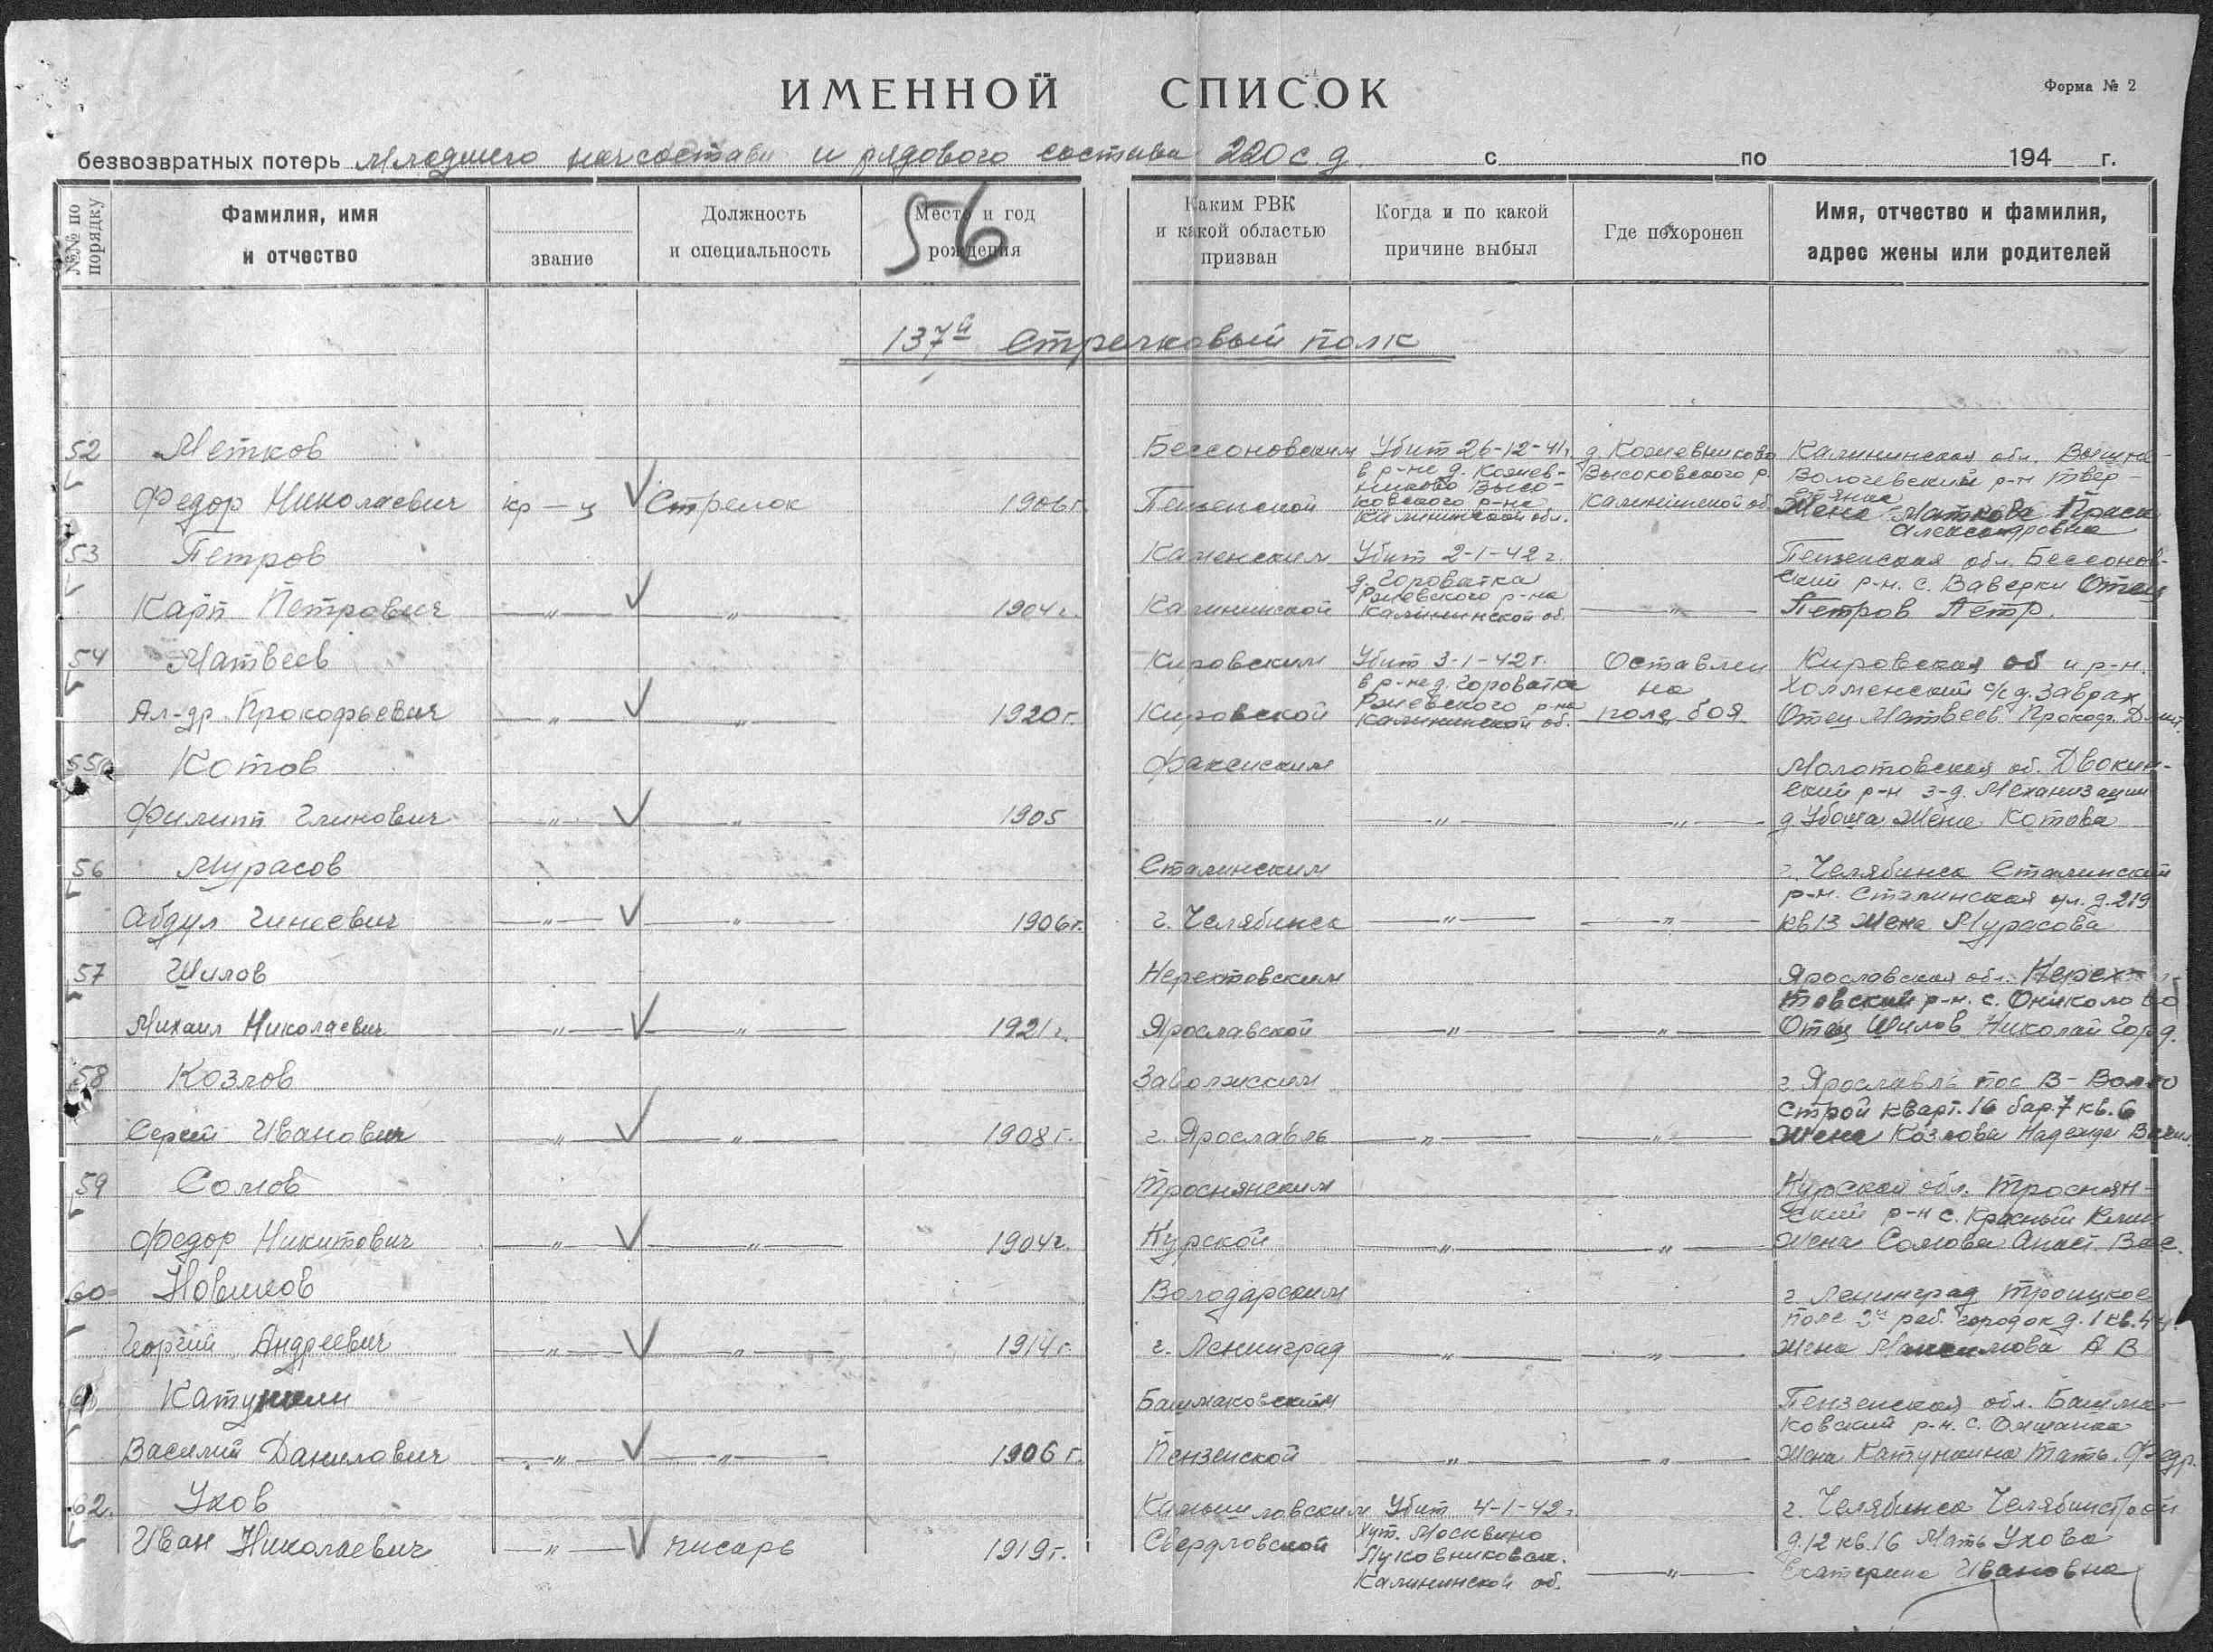 ИМЕННОЙ СПИСОК
Форма № 2
безвозвратных потерь младшего начсостава и рядового состава 220 с. д. с по 194 г.
№№ по порядку
Фамилия, имя и отчество
звание
Должность и специальность
Место и год рождения
56
Каким РВК и какой областью призван
Когда и по какой причине выбыл
Где похоронен
Имя, отчество и фамилия, адрес жены или родителей
137й Стрелковый полк
52 Метков Бессоновским Убит 26-12-41г. д. Кожевниково Калининская обл. Вышне-
в р-не д. Кожев- Высоковского р. Волочевский р-н Твер-
никово Высо-
Федор Николаевич кр-ц Стрелок 1906г. Пензенской ковского р-на Калининской об. Жена Маткова
Калининской обл. Александровна
53 Петров Каменским Убит 2-1-42г. Пензенская обл. Бессонов-
д. Гороватка ский р-н. с. Ваверки Отец
Ржевского р-на
Карп Петрович —„— —„— 1904г. Калининской Калининской об. —„— Петров Петр.
54 Матвеев Кировским Убит 3-1-42г. Оставлен Кировская об и р-н.
в р-не д. Гороватка на Холменский с/с д. Заврах
Ржевского р-на
Ал-др Прокофьевич —„— —„— 1920г. Кировской Калининской об. поле боя Отец Матвеев Прокоф.
55 Котов Молотовская об.
ский р-н з-д. Механизации
Филипп —„— —„— 1905 —„— —„— Жена Котова
56 Мурасов Сталинским г. Челябинск Сталинский
р-н. Сталинская ул. д. 219
Абдул —„— —„— 1906г. г. Челябинск —„— —„— кв 13 Жена Мурасова
57 Шилов Нерехтовским Ярославская обл. Нерех-
товский р-н. с.
Михаил Николаевич —„— —„— 1921г. Ярославской —„— —„— Отец Шилов Николай
58 Козлов Заволжским г. Ярославль пос В-Волго
строй кварт. 16 бар. 7 кв. 6
Сергей Иванович —„— —„— 1908г. г. Ярославль —„— —„— Жена Козлова Надежда
59 Сомов Троснянским Курской обл. Троснян-
ский р-н с. Красный
Федор Никитович —„— —„— 1904г. Курской —„— —„— Жена Сомова Анаст. Вас.
60 Новиков Володарским г Ленинград Троицкое
поле 2й раб. городок д. 1 кв. 44
Георгий Андреевич —„— —„— 1914г. г. Ленинград —„— —„— Жена А В
61 Катункин Башмаковским Пензенская обл. Башма-
ковский р-н. с. Ольшанка
Василий Данилович —„— —„— 1906г. Пензенской —„— —„— Жена Катункина Тать. Федр.
62. Уков Камышловским Убит 4-1-42г. г. Челябинск Челябинстрой
Хут. Москвино
Иван Николаевич —„— писарь 1919г. Свердловской Луковниковск. д. 12 кв. 16 Мать Укова
Калининской об. —„— Екатерина Ивановна